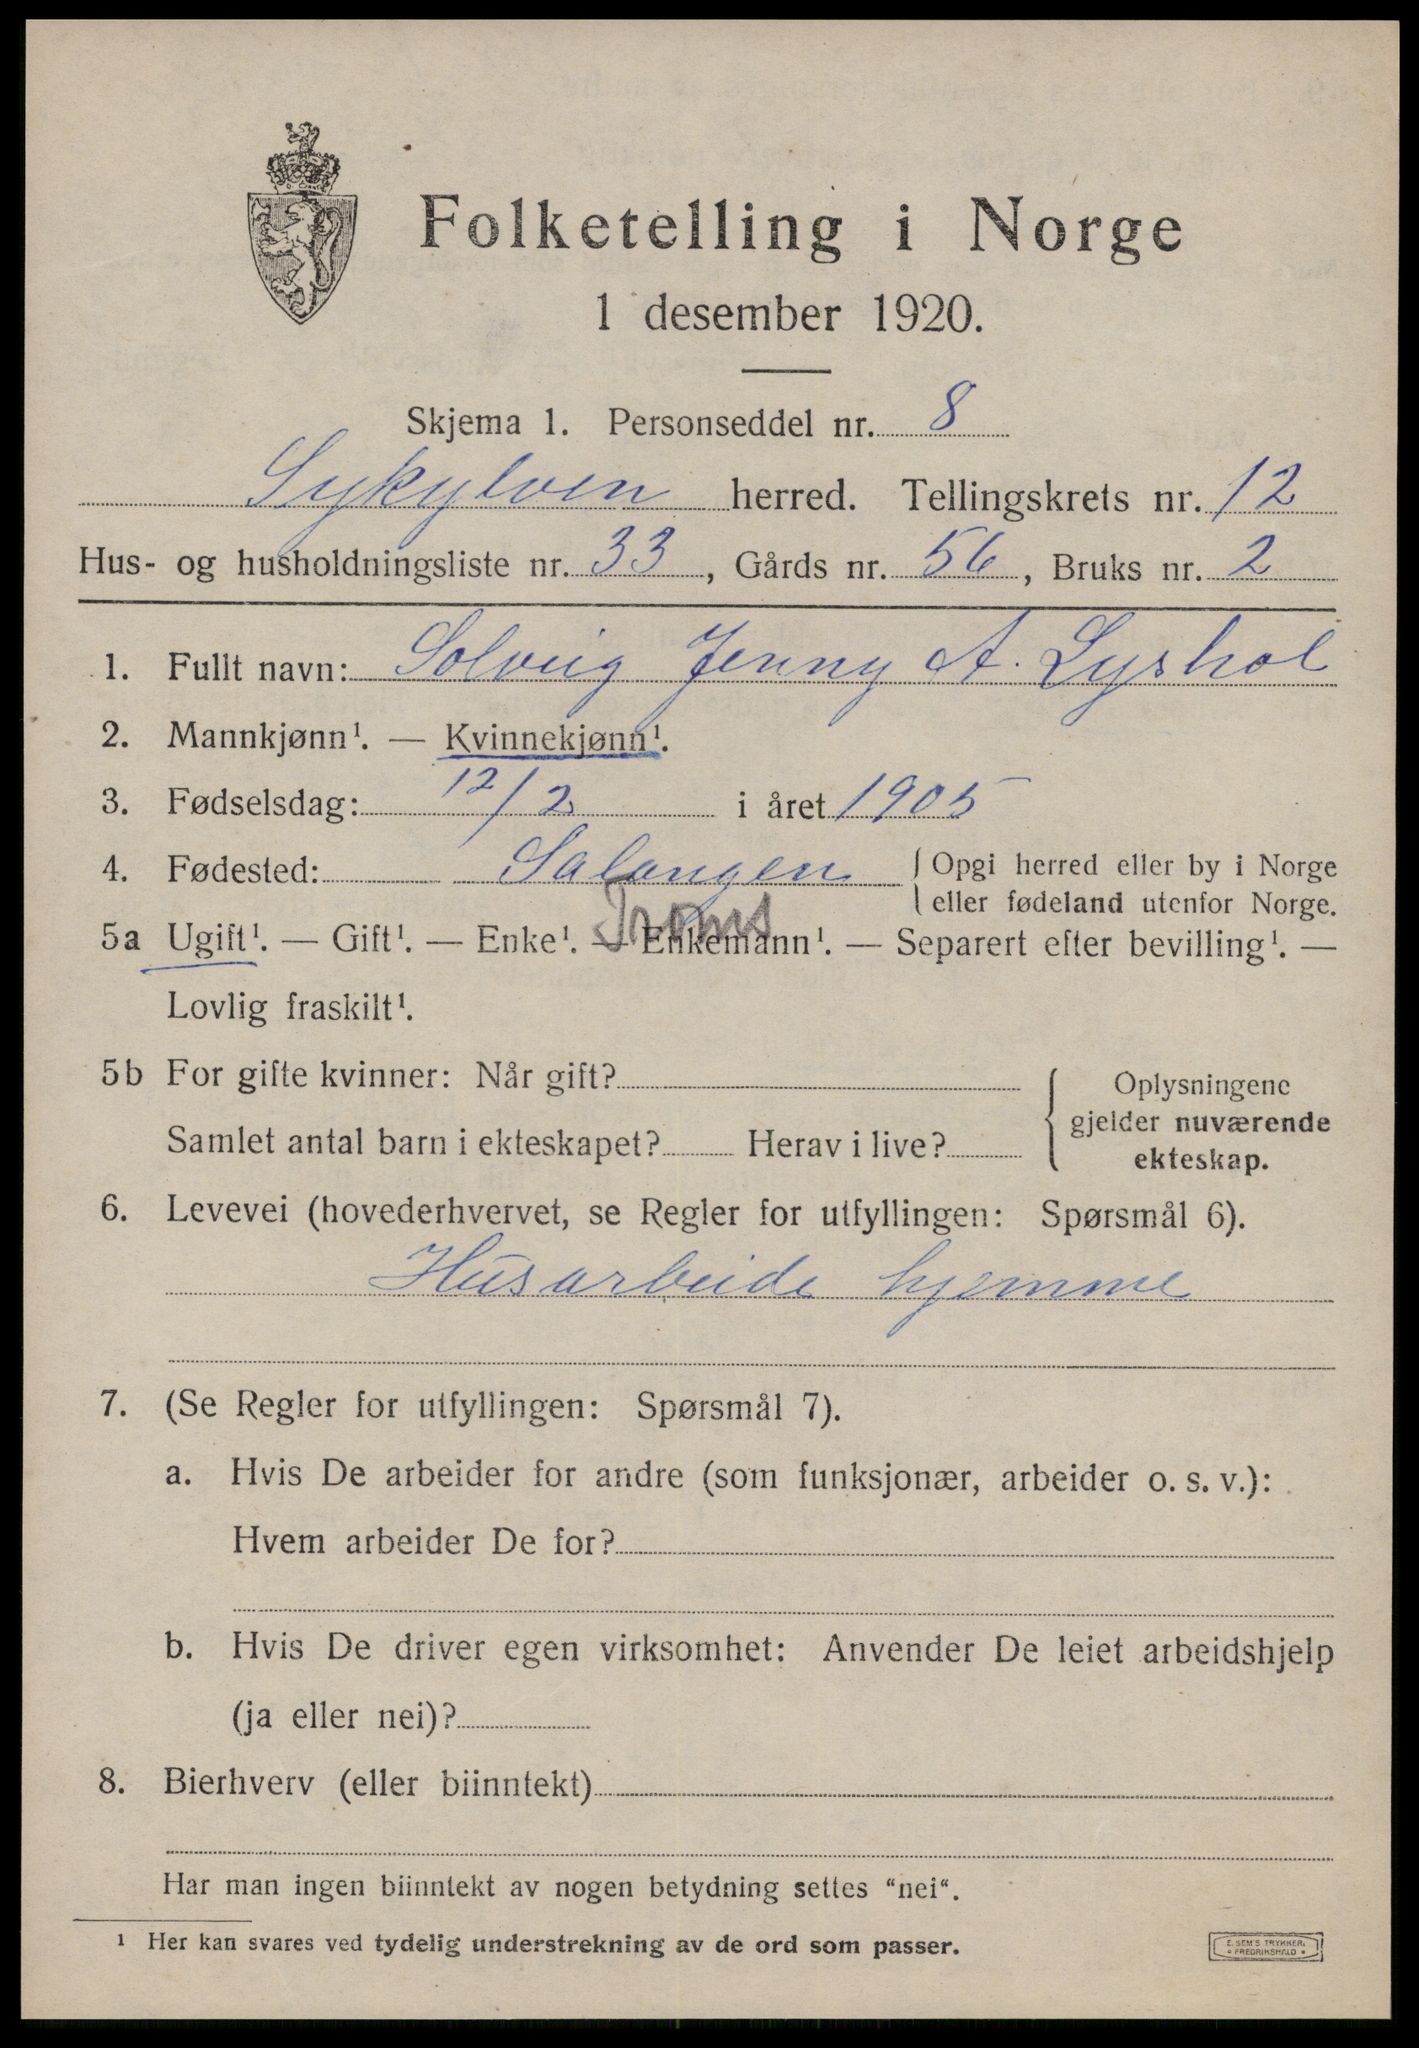 Folketelling i Norge
1 desember 1920.
Skjema 1. Personseddel nr. 8
Sykylven herred. Tellingskrets nr. 12
Hus- og husholdningsliste nr. 33, Gårds nr. 56, Bruks nr. 2
1. Fullt navn: Solveig Jenny A. Lyshol
2. Mannkjønn¹. — Kvinnekjønn¹.
3. Fødselsdag: 12/2 i året 1905
4. Fødested: Salangen { Opgi herred eller by i Norge
eller fødeland utenfor Norge.
Troms
5a Ugift¹. — Gift¹. — Enke¹. — Enkemann¹. — Separert efter bevilling¹. —
Lovlig fraskilt¹.
5b For gifte kvinner: Når gift?
Samlet antal barn i ekteskapet? Herav i live?
{ Oplysningene
gjelder nuværende
ekteskap.
6. Levevei (hovederhvervet, se Regler for utfyllingen: Spørsmål 6).
Husarbeide hjemme
7. (Se Regler for utfyllingen: Spørsmål 7).
a. Hvis De arbeider for andre (som funksjonær, arbeider o. s. v.):
Hvem arbeider De for?
b. Hvis De driver egen virksomhet: Anvender De leiet arbeidshjelp
(ja eller nei)?
8. Bierhverv (eller biinntekt)
Har man ingen biinntekt av nogen betydning settes "nei".
¹ Her kan svares ved tydelig understrekning av de ord som passer.
E. SEM'S TRYKKERI
• FREDRIKSHALD •